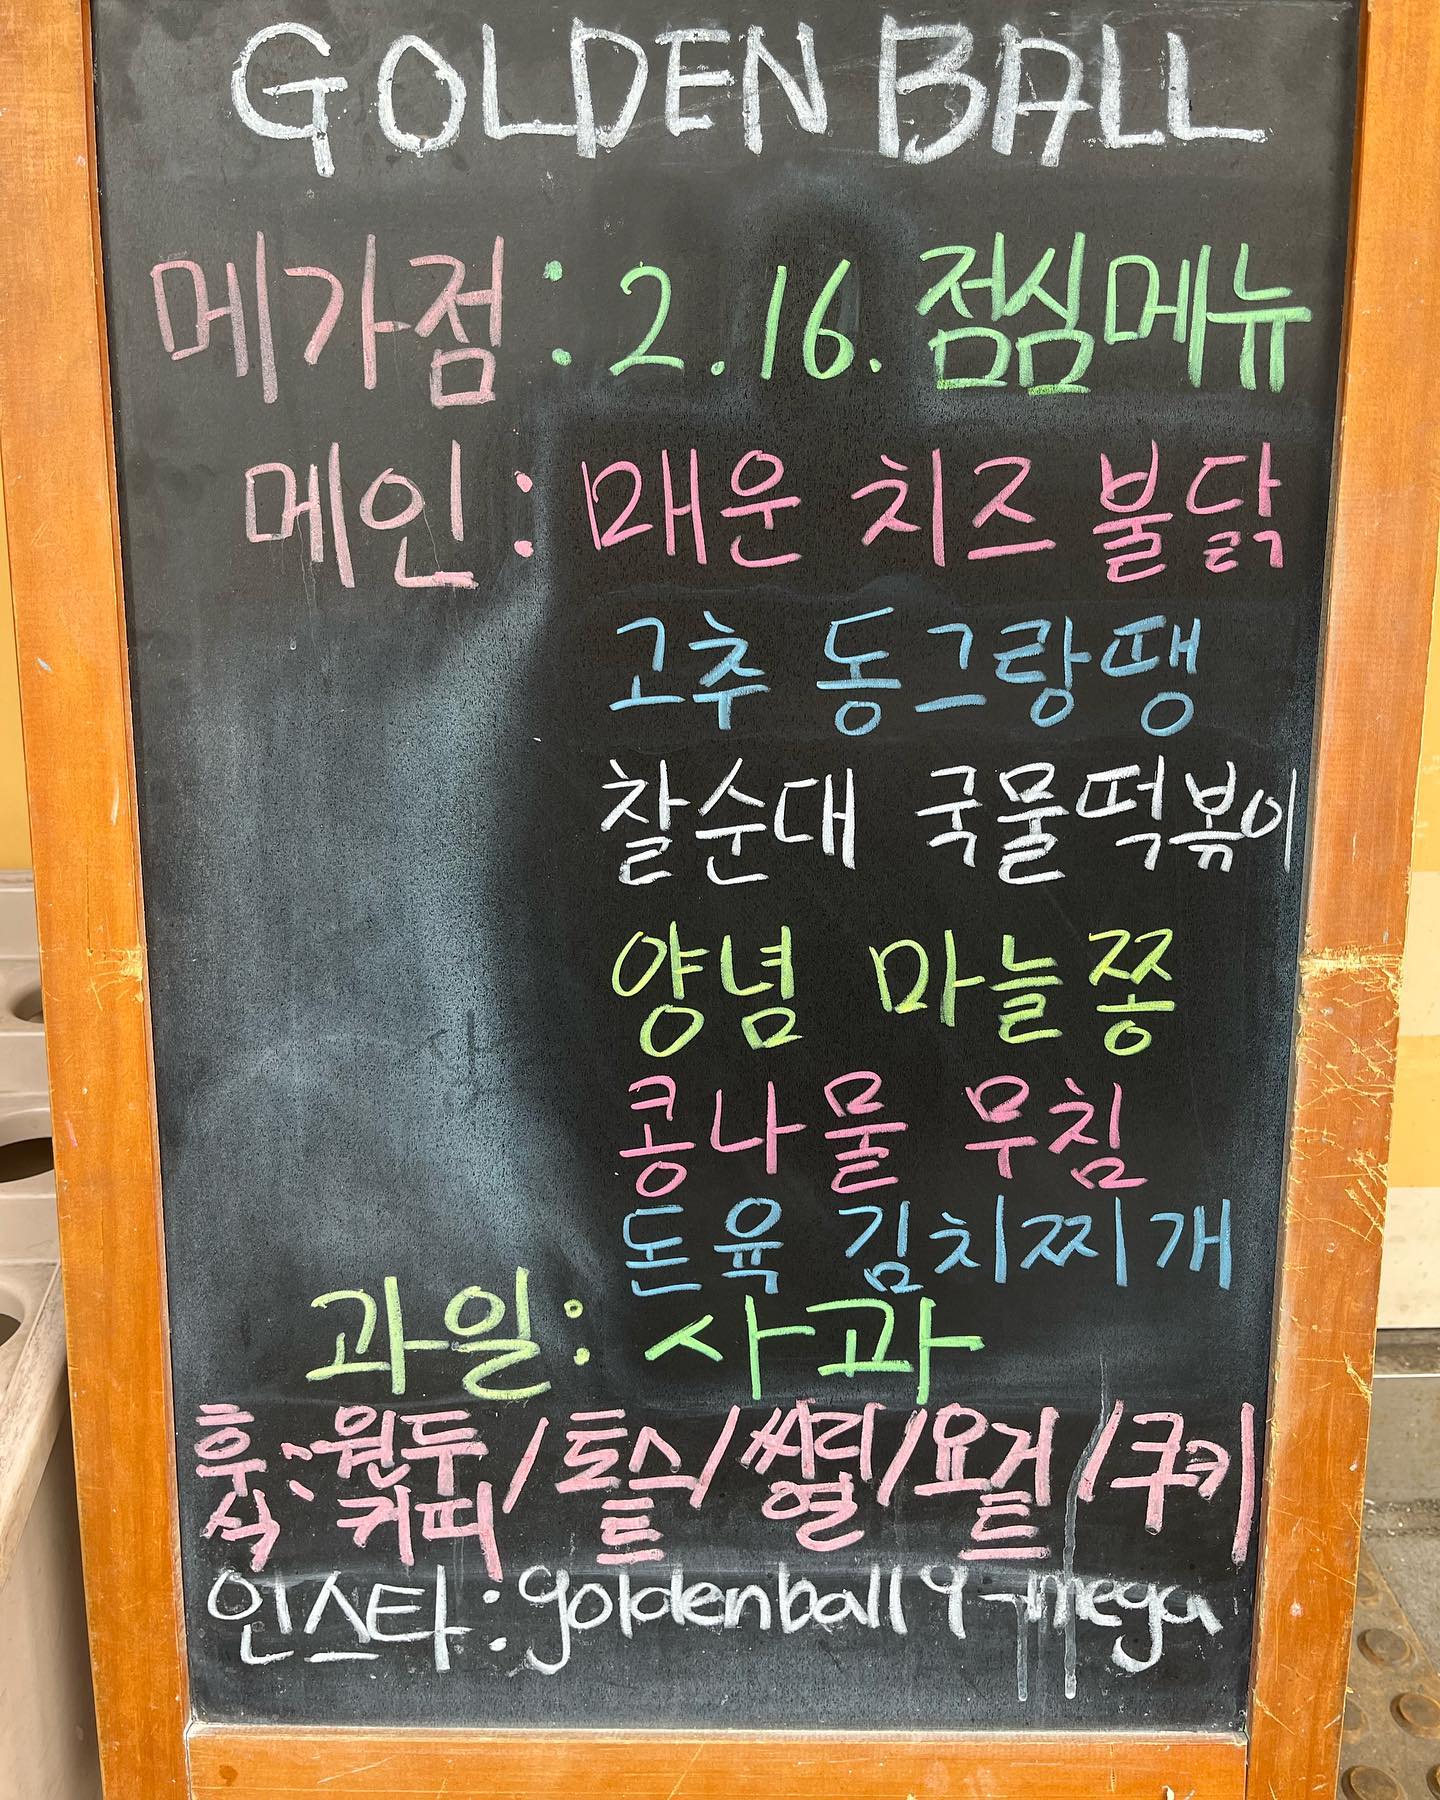 GOLDEN BALL
메가점 : 2.16. 점심메뉴
메인 : 매운 치즈 불닭
고추 동그랑땡
찰순대 국물떡볶이
양념 마늘쫑
콩나물 무침
돈육 김치찌개
과일 : 사과
후식 : 원두커피 / 토스트 / 씨리얼 / 요거트 / 쿠키
인스타 : goldenball9_mega